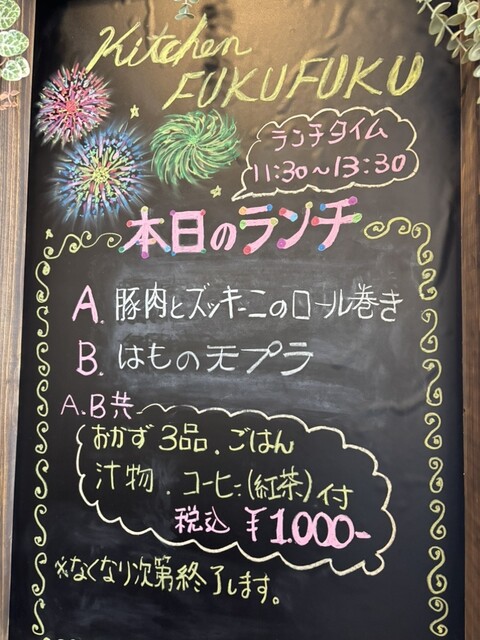 Kitchen
FUKUFUKU
ランチタイム
11:30～13:30
本日のランチ
A. 豚肉とズッキーニのロール巻き
B. はもの天プラ
A.B共
おかず3品、ごはん
汁物、コーヒー(紅茶)付
税込 ¥1.000-
※なくなり次第終了します。